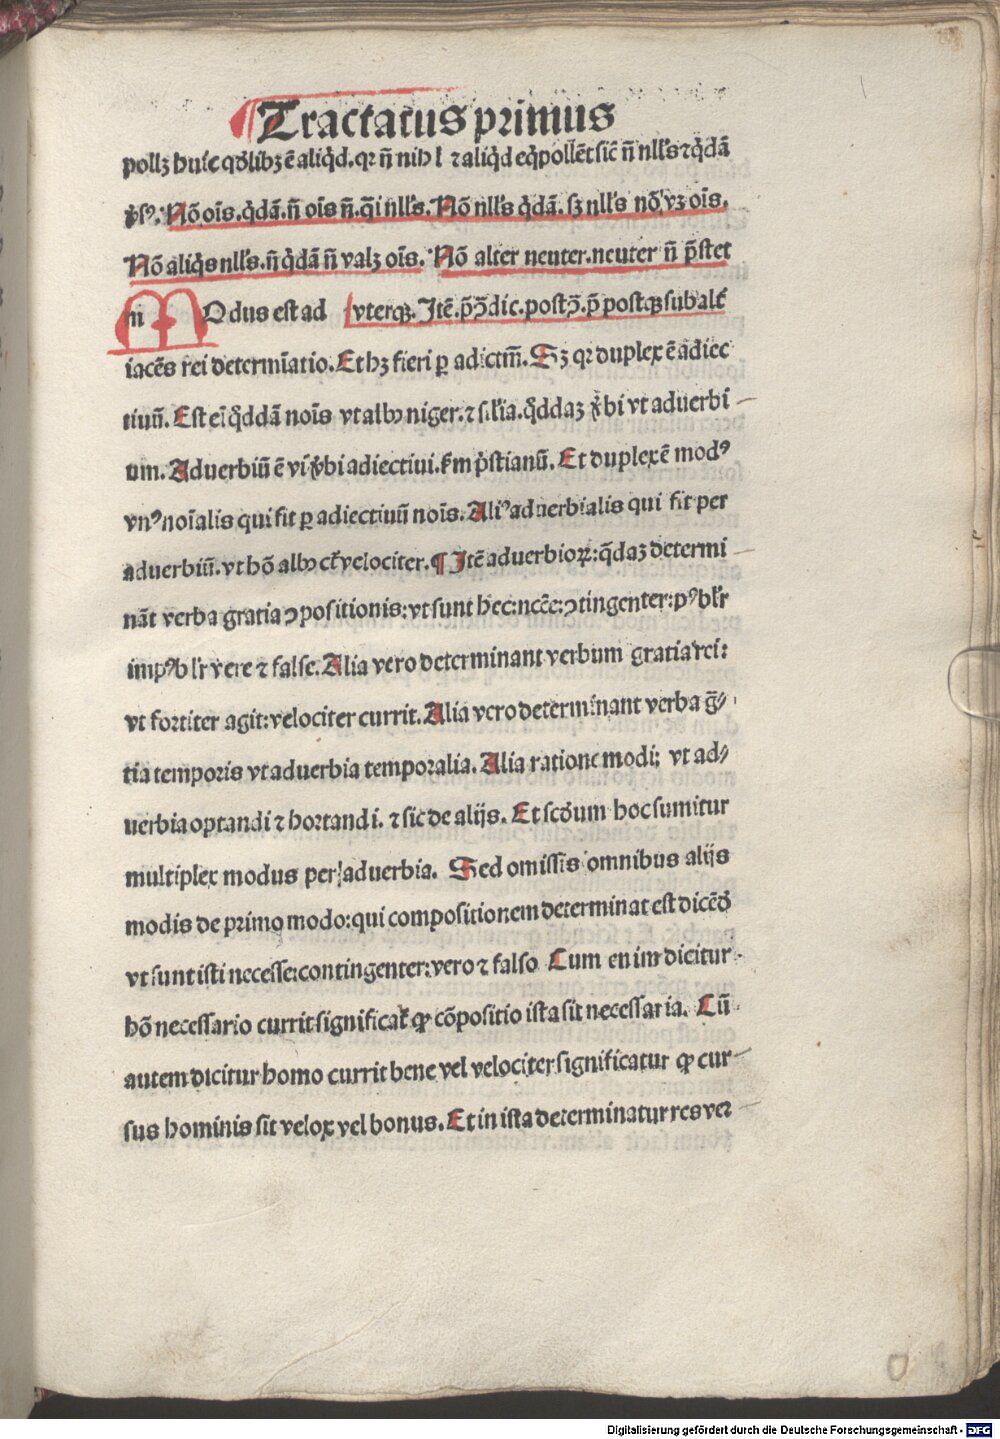 Tractatus primus
pollꝫ huic qđlibꝫ ē aliq̇d. qꝛ ñ nihl ⁊ aliq̇d eq̇pollēt sic̄ ñ nll's ⁊ q̇dā
Nō oīs. q̇dā. ñ oīs ñ. q̄i nll's. Nō nll's q̇dā. sꝫ nll's nō vꝫ oīs.
Nō aliq̇s nll's. ñ q̇dā ñ valꝫ oīs. Nō alter neuter. neuter ñ p̄stet
MOdus est ad vterqꝫ. Itē. p̄ ꝯ̄dic. post ꝯ̄. p̄ postqꝫ subalt̄
iacēs rei determīatio. Et hꝫ fieri ꝑ adictm̄. Sꝫ qꝛ duplex ē adiec
tiuū. Est eī q̇ddā noīs vt albꝰ niger. ⁊ sil'ia. q̇ddaꝫ v̄bi vt aduerbi
um. Aduerbiū ē vī v̄bi adiectiui. s̄m ṗstianū. Et duplex ē modꝰ
vnꝰ noīalis qui fit ꝑ adiectiuū noīs. Aliꝰ aduerbialis qui fit per
aduerbiū. vt hō albꝰ cr̄t velociter. ¶ Itē aduerbioꝝ: q̄daꝫ determi
nāt verba gratia ꝯpositionis: vt sunt hec: ncc̄e: ꝯtingenter: pꝰbl'r
impꝰbl'r vere ⁊ false. Alia vero determinant verbum gratia rei:
vt fortiter agit: velociter currit. Alia vero determinant verba ḡr⸗
tia temporis vt aduerbia temporalia. Alia ratione modi; vt ad⸗
uerbia optandi ⁊ hortandi. ⁊ sic de alijs. Et scđum hoc sumitur
multiplex modus per aduerbia. Sed omissis omnibus alijs
modis de primo modo: qui compositionem determinat est dicēđ
vt sunt isti necesse: contingenter: vero ⁊ falso Cum enim dicitur
hō necessario currit significat̄ ꝙ cōpositio ista sit necessaria. Cū
autem dicitur homo currit bene vel velociter significatur ꝙ cur
sus hominis sit velox vel bonus. Et in ista determinatur res ver
Digitalisierung gefördert durch die Deutsche Forschungsgemeinschaft - DFG